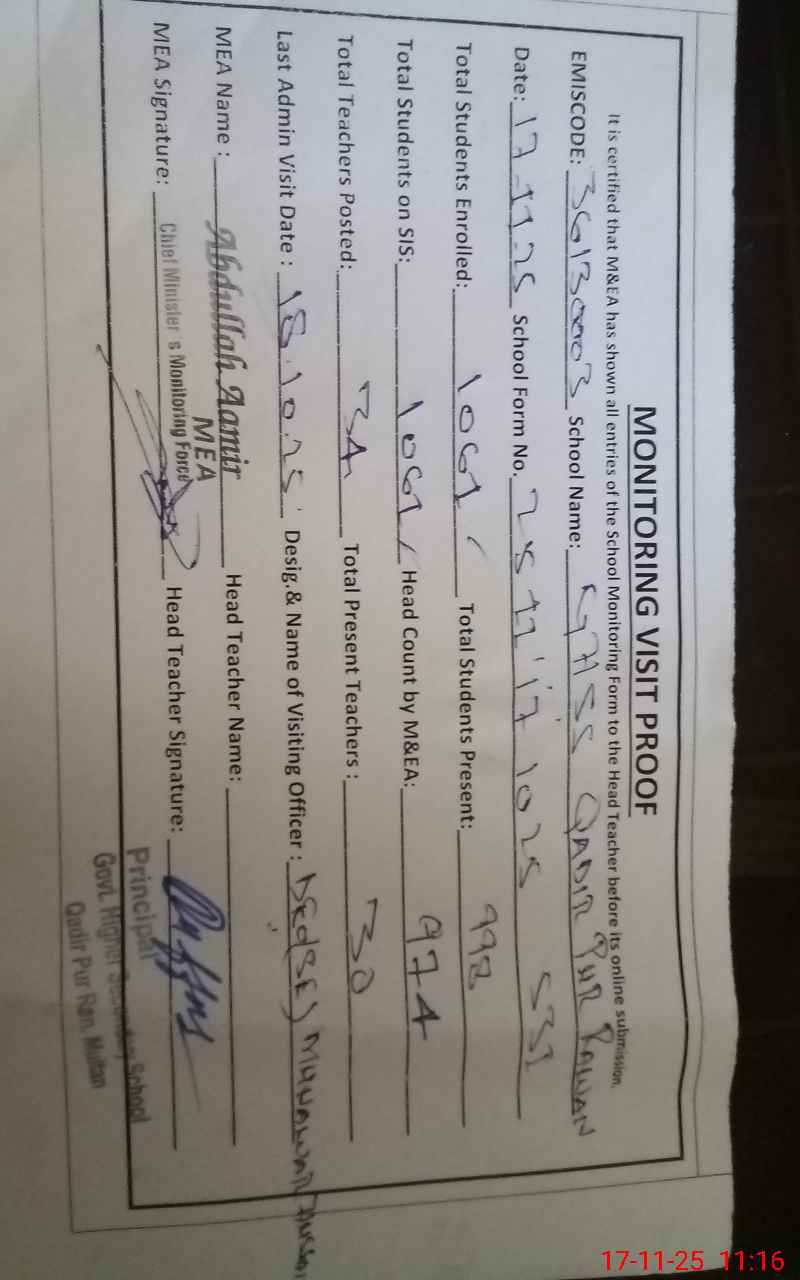 MONITORING VISIT PROOF
It is certified that M&EA has shown all entries of the School Monitoring Form to the Head Teacher before its online submission.
EMISCODE: 36130003 School Name: GHSS QADIR PUR RAWAN
Date: 17-11-25 School Form No.
Total Students Enrolled: 1061 Total Students Present: 992
Total Students on SIS: 1061 Head Count by M&EA: 974
Total Teachers Posted: 34 Total Present Teachers: 30
Last Admin Visit Date: 18.10.25 Desig.& Name of Visiting Officer: MUNAWAR
MEA Name: Abdullah Aamir Head Teacher Name:
MEA
MEA Signature: Chief Minister's Monitoring Force Head Teacher Signature:
Principal
Govt. Higher Secondary School
Qadir Pur Ran, Multan
17-11-25 11:16